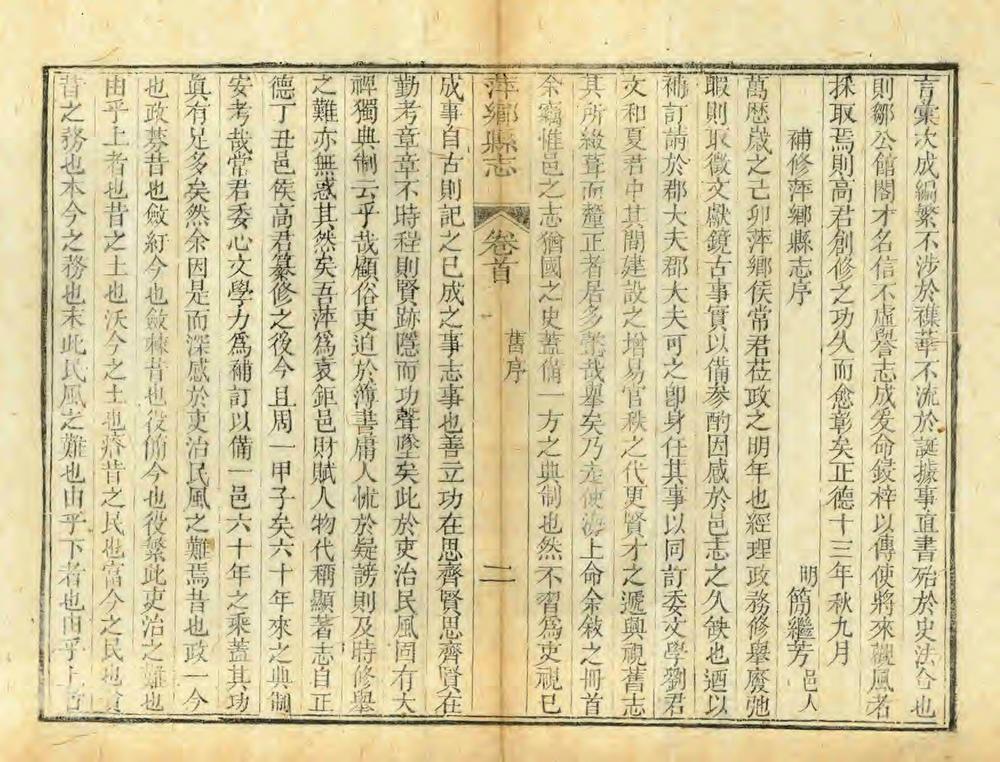 言彙次成編繁不涉於穢華不流於誕據事直書殆於史法合也
則鄒公館閣才名信不虛譽志成爰命鋟梓以傳使將來觀風者
採取焉則高君創修之功久而愈彰矣正德十三年秋九月
補修萍鄉縣志序
明簡繼芳邑人
萬歷歲之己卯萍鄉侯常君莅政之明年也經理政務修舉廢弛
暇則取徵文獻鏡古事實以備參酌因感於邑志之久缺也迺以
補訂請於郡大夫郡大夫可之卽身任其事以同訂委文學劉君
文和夏君中其間建設之增易官秩之代更賢才之遞興視舊志
其所綴葺而釐正者居多懿哉舉矣乃走使海上命余敘之冊首
余竊惟邑之志猶國之史蓋備一方之典制也然不習爲吏視已
萍鄉縣志
卷首
舊序
二
成事自古則記之已成之事志事也善立功在思齊賢思齊賢在
勤考章章不時程則賢跡隱而功聲墜矣此於吏治民風固有大
裨獨典制云乎哉顧俗吏迫於簿書庸人怵於疑謗則及時修舉
之難亦無惑其然矣吾萍爲袁鉅邑財賦人物代稱顯著志自正
德丁丑邑侯高君纂修之後今且周一甲子矣六十年來之典制
安考哉常君委心文學力爲補訂以備一邑六十年之乘蓋其功
眞有足多矣然余因是而深感於吏治民風之難焉昔也政一今
也政棼昔也斂紅今也斂棘昔也役簡今也役繁此吏治之難也
由乎上者也昔之土也沃今之土也瘠昔之民也富今之民也貧
昔之務也本今之務也末此民風之難也由乎下者也由乎上者